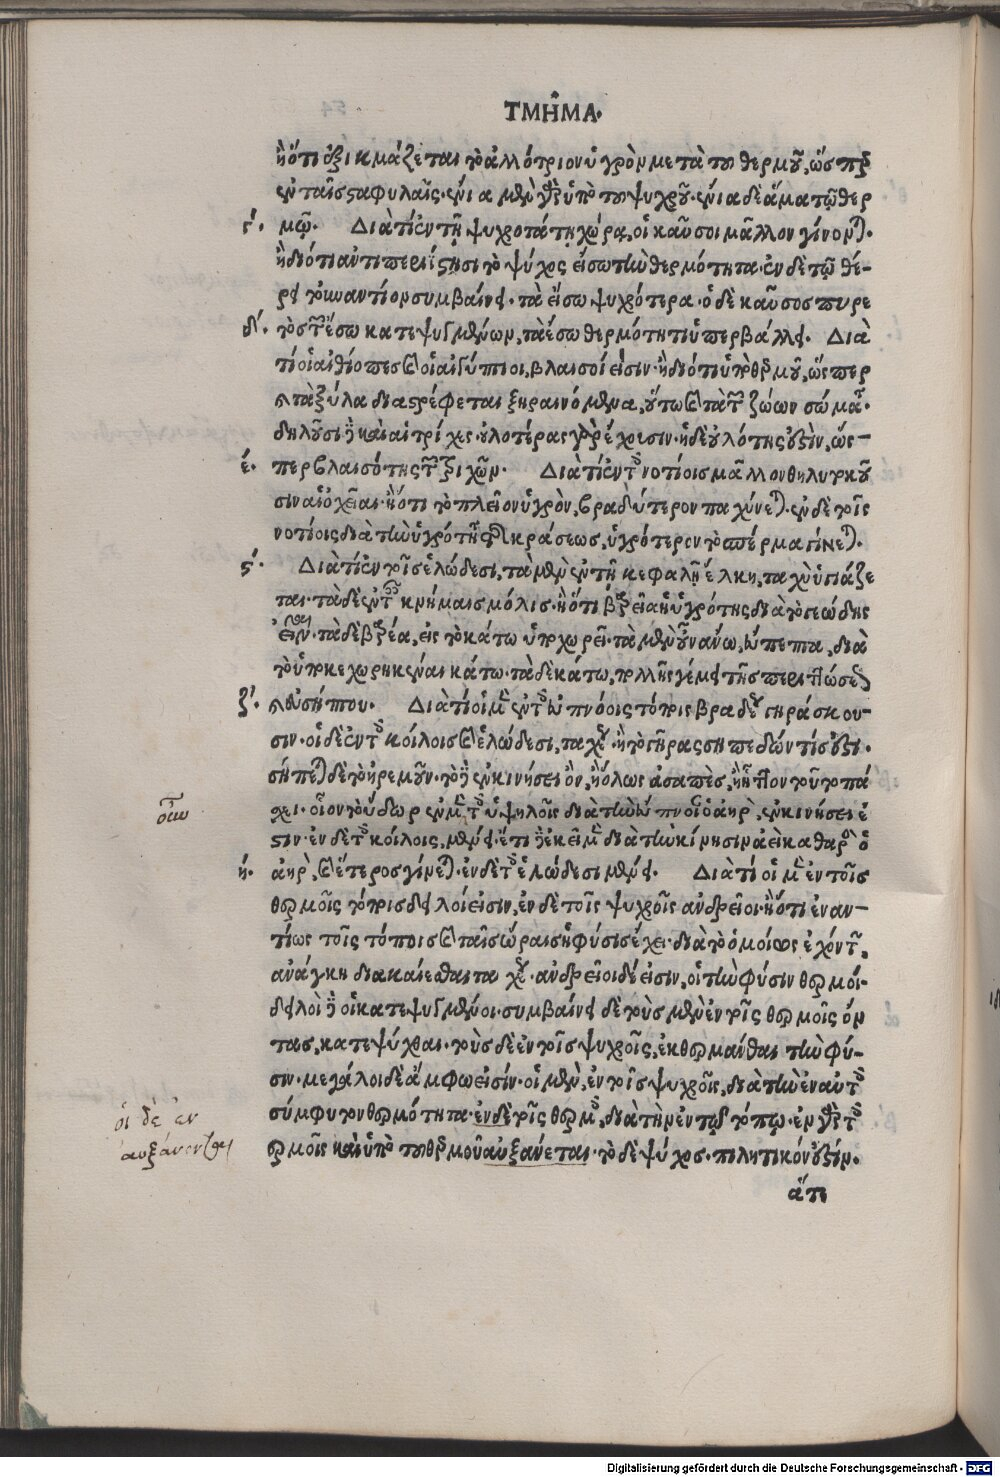 ΤΜΗ͂ΜΑ·
ἢ ὅτι ἐξικμάζεται τὸ ἀλλότριον ὑγρὸν μετὰ τοῦ θερμοῦ, ὥσπερ
ἐν ταῖς σταφυλαῖς· ἔνια μὲν γὰρ ὑπὸ τοῦ ψυχροῦ· ἔνια δὲ ἅμα τῷ θερ
γ΄· μῷ· Διὰ τί ἐν τῇ ψυχροτάτῃ χώρᾳ, οἱ καῦσοι μᾶλλον γίνονται·
ἢ διότι ἀντιπεριΐστησι τὸ ψύχος εἴσω τὴν θερμότητα· ἐν δὲ τῷ θέ-
ρει τοὐναντίον συμβαίνει· τὰ εἴσω ψυχότερα· ὁ δὲ καῦσος πυρε
δ΄· τὸς τῶν ἔσω κατεψυγμένων, τὰ ἔσω θερμότητι ὑπερβάλλει· Διὰ
τί οἱ αἰθίοπες καὶ οἱ αἰγύπτιοι, βλαισοί εἰσιν· ἢ διότι ὑπὸ θερμοῦ, ὥσπερ
καὶ τὰ ξύλα διαστρέφεται ξηραινόμενα, οὕτω καὶ τὰ τῶν ζώων σώματα·
δηλοῦσι δὲ καὶ αἱ τρίχες· οὐλοτέρας γὰρ ἔχουσιν· ἡ δὲ οὐλότης ἐστὶν, ὥσ-
ε΄· περ βλαισότης τῶν τριχῶν· Διὰ τί ἐν τοῖς νοτίοις μᾶλλον θηλυγονοῦ
σιν αἱ ὀχεῖαι· ἢ ὅτι τὸ πλεῖον ὑγρὸν, βραδύτερον παχύνεται· ἐν δὲ τοῖς
νοτίοις διὰ τὴν ὑγρότητα τῆς κράσεως, ὑγρότερον τὸ σπέρμα γίνεται·
ς΄· Διὰ τί ἐν τοῖς ἑλώδεσι, τὰ μὲν ἐν τῇ κεφαλῇ ἕλκη, ταχὺ ὑγιάζε
ται· τὰ δὲ ἐν ταῖς κνήμαις μόλις· ἢ ὅτι βαρεῖα ἡ ὑγρότης διὰ τὸ γεώδης
εἶναι· τὰ δὲ βαρέα, εἰς τὸ κάτω ὑποχωρεῖ· τὰ μὲν οὖν ἄνω, εὔπεπτα, διὰ
τὸ ὑποκεχωρηκέναι κάτω· τὰ δὲ κάτω, πολλῆς γέμει τῆς περιττώσεως
ζ΄· καὶ εὐσήπτου· Διὰ τί οἱ μὲν ἐν τοῖς εὐπνόοις τόποις βραδέως γηράσκου-
σιν· οἱ δὲ ἐν τοῖς κοίλοις καὶ ἑλώδεσι, ταχέως· ἢ τὸ γῆρας σηπεδών τίς ἐστι·
σήπεται δὲ τὸ ἠρεμοῦν· τὸ δὲ ἐν κινήσει ὂν, ἢ ὅλως ἀσαπὲς, ἢ ἧττον τοῦτο πά
ὅπου
χει· οἷον τὸ ὕδωρ· ἐν μὲν τοῖς ὑψηλοῖς διὰ τὴν εὔπνοιαν ὁ ἀὴρ, ἐν κινήσει ἐ
στιν· ἐν δὲ τοῖς κοίλοις, μένει· ἔτι δὲ ἐκεῖ μὲν διὰ τὴν κίνησιν ἀεὶ καθαρὸς ὁ
η΄· ἀὴρ, καὶ ἕτερος γίνεται· ἐν δὲ τοῖς ἑλώδεσι μένει· Διὰ τί οἱ μὲν ἐν τοῖς
θερμοῖς τόποις δειλοί εἰσιν, ἐν δὲ τοῖς ψυχροῖς ἀνδρεῖοι· ἢ ὅτι ἐναν-
τίως τοῖς τόποις καὶ ταῖς ὥραις ἡ φύσις ἔχει· διὰ τὸ ὁμοίως ἐχόντων,
ἀνάγκη διακαίεσθαι ταχέως· ἀνδρεῖοι δέ εἰσιν, οἱ τὴν φύσιν θερμοί·
δειλοὶ δὲ οἱ κατεψυγμένοι· συμβαίνει δὲ τοὺς μὲν ἐν τοῖς θερμοῖς ὄν
τας, κατεψύχθαι· τοὺς δὲ ἐν τοῖς ψυχροῖς, ἐκθερμαίνεσθαι τὴν φύ-
σιν· μεγάλοι δὲ ἄμφω εἰσίν· οἱ μὲν, ἐν τοῖς ψυχροῖς, διὰ τὴν ἐν αὐτοῖς
οἱ δὲ ἐν
σύμφυτον θερμότητα· ἐν δὲ τοῖς θερμοῖς, διὰ τὴν ἐν τῷ τόπῳ· ἐν γὰρ τοῖς
αὐξάνονται
θερμοῖς καὶ ὑπὸ τοῦ θερμοῦ αὐξάνεται· τὸ δὲ ψύχος· πιλητικόν ἐστιν·
ἅτι
Digitalisierung gefördert durch die Deutsche Forschungsgemeinschaft - DFG